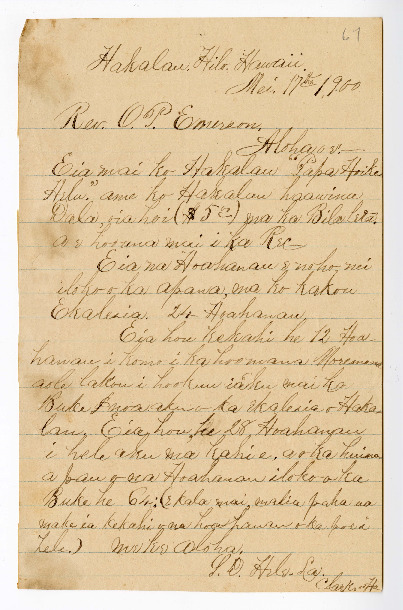 67
Hakalau. Hilo. Hawaii
Mei. 17th 1900
Rev. O. P. Emerson.
Aloha oe.—
Eia mai ko Hakalau "Papa Hoike
Helu." ame ko Hakalau
Dola, oia hoi ($5 00) ma ka Bila
a e hoouna mai i ka Rec—
Eia na Hoahanau e noho nei
iloko o ka apana, ma ko kakou
Ekalesia. 24 Hoahanau.
Eia hou kekahi he 12 Hoa-
hanau i komo i ka hoomana Moremona
aole lakou i hookuu iaku mai ka
Buke inoa aku o ka Ekalesia o Haka-
lau. Eia hou he 28, Hoahanau
i hele aku ma kahi e. a o ka huina
a pau o na Hoahanau iloko o ka
Buke he 64: (E kala mai, malia paha ua
make ia kekahi o na hoahanau o ka poe i
hele.) me ke aloha.